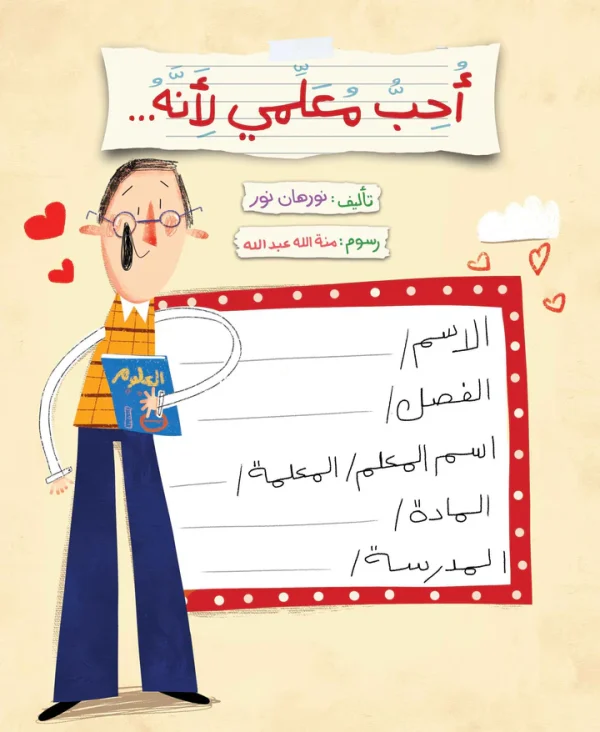 أُحِبُّ مُعَلِّمي لِأَنَّهُ...
تأليف: نورهان نور
رسوم: منة الله عبد الله
العلوم
الاسم/
الفصل/
اسم المعلم/ المعلمة/
المادة/
المدرسة/